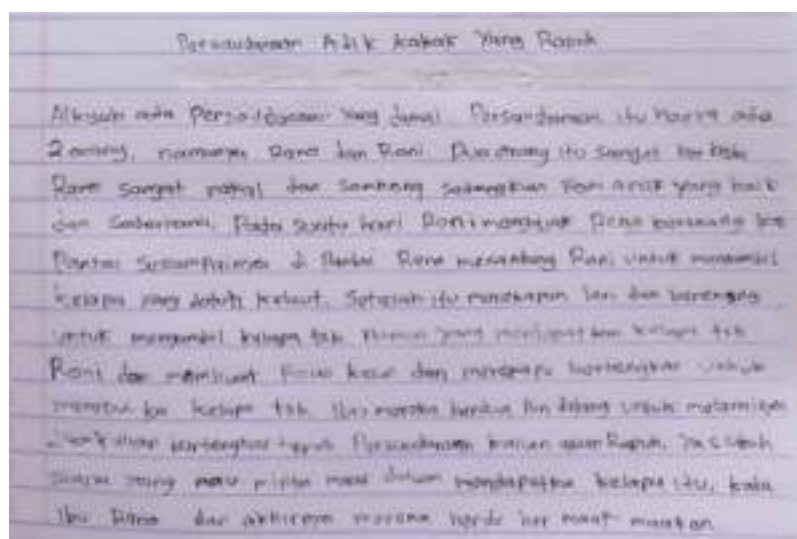 Persaudaraan Adik kakak Yang Rapuh
Alkisah ada Persaudaraan yang damai. Persaudaraan itu hanya ada
2 orang, namanya Rana dan Rani. Dua orang itu sangat
Rana sangat nakal dan sombong sedangkan Rani anak yang baik
dan sederhana. Pada suatu hari Rani mengajak Rena ke
Pantai Sesampainya di Pantai Rena menantang Rani untuk mengambil
kelapa yang jatuh kelaut. Setelah itu merekapun lari dan berenang
untuk mengambil kelapa tsb. Namun yang mendapatkan kelapa tsb
Rani dan membuat Rena kesal dan merekapun bertengkar untuk
kelapa tsb. Ibu mereka datang untuk
kalian bertengkar terus Persaudaraan kalian akan Rapuh.
yang mau dalam mendapatkan kelapa itu, kata
Ibu Rana dan akhirnya mereka maaf maafan